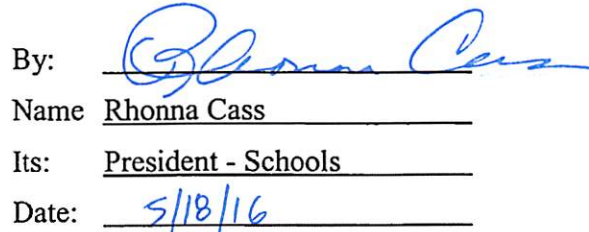 By: Rhonna Cass
Name Rhonna Cass
Its: President - Schools
Date: 5/18/16